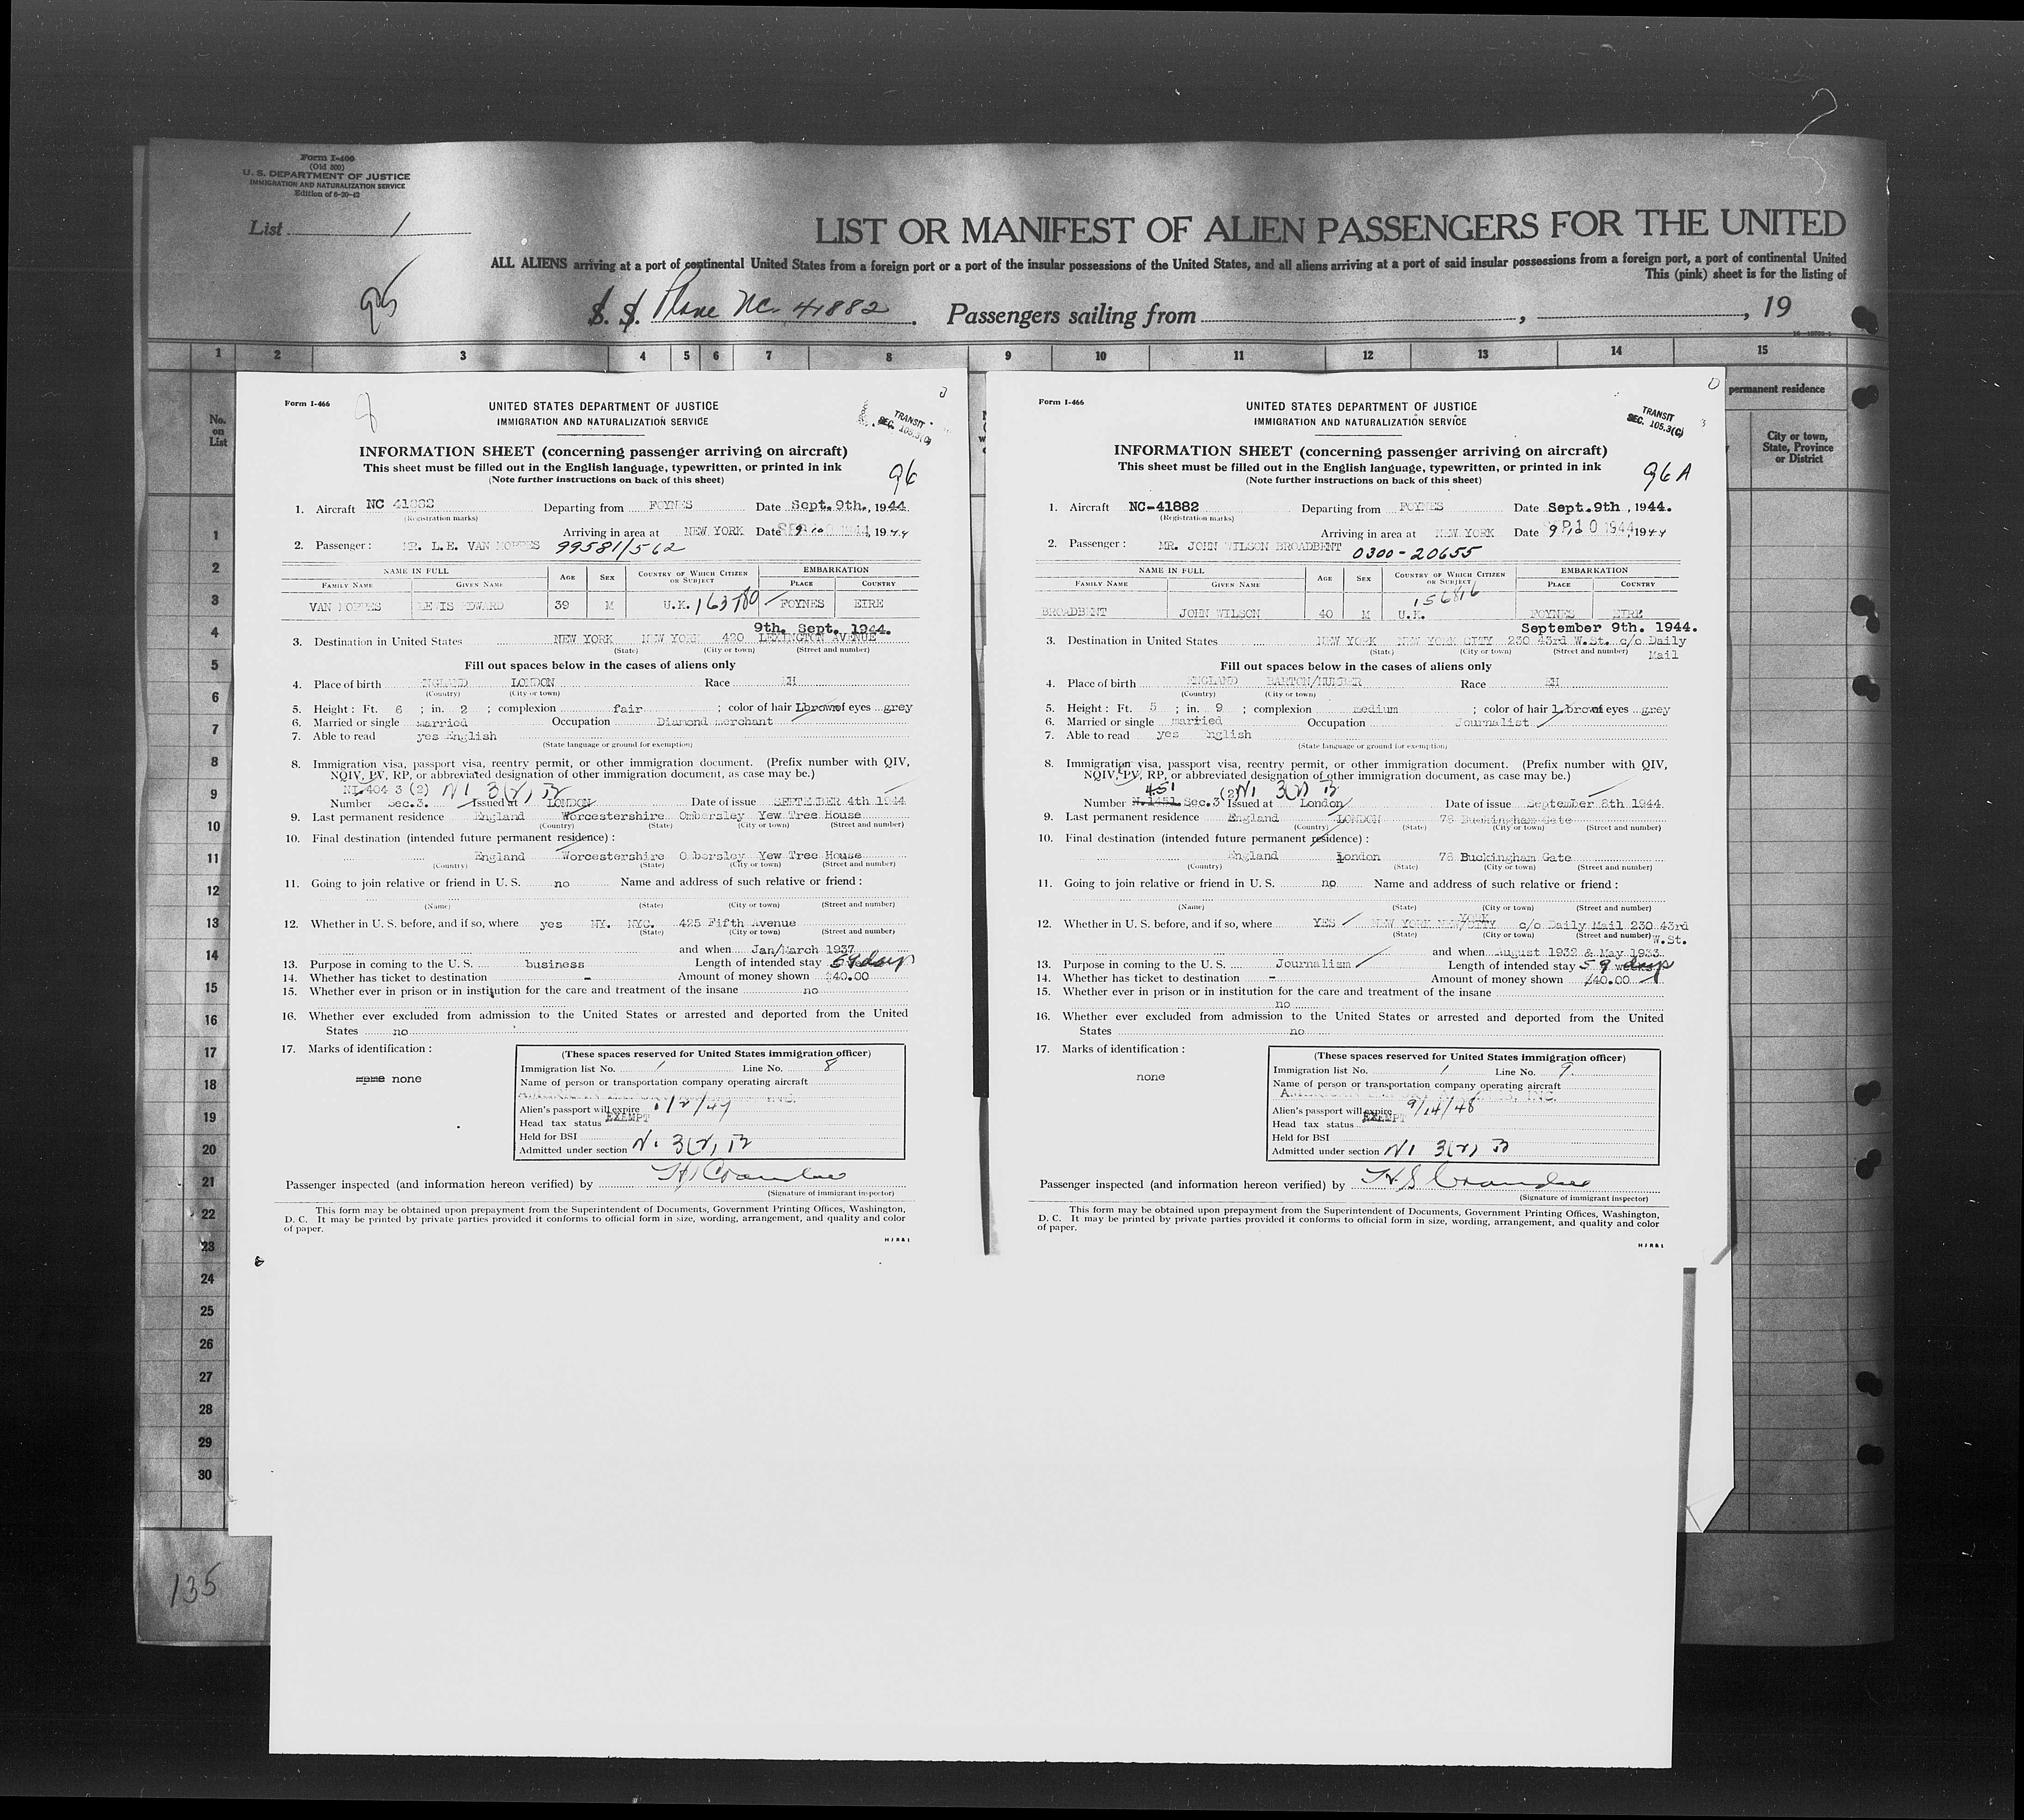 Form I-400
(Old 500)
U. S. DEPARTMENT OF JUSTICE
IMMIGRATION AND NATURALIZATION SERVICE
Edition of 6-20-42
List 1
LIST OR MANIFEST OF ALIEN PASSENGERS FOR THE UNITED
ALL ALIENS arriving at a port of continental United States from a foreign port or a port of the insular possessions of the United States, and all aliens arriving at a port of said insular possessions from a foreign port, a port of continental United
This (pink) sheet is for the listing of
95
S. S. Plane NC. 41882. Passengers sailing from , , 19
1 2 3 4 5 6 7 8 9 10 11 12 13 14 15
No. on List
permanent residence
City or town, State, Province or District
1
2
3
4
5
6
7
8
9
10
11
12
13
14
15
16
17
18
19
20
21
22
23
24
25
26
27
28
29
30
135
Form I-466
UNITED STATES DEPARTMENT OF JUSTICE
IMMIGRATION AND NATURALIZATION SERVICE
TRANSIT
SEC. 105.3(C)
INFORMATION SHEET (concerning passenger arriving on aircraft)
This sheet must be filled out in the English language, typewritten, or printed in ink
(Note further instructions on back of this sheet)
96
1. Aircraft NC 41882 Departing from FOYNES Date Sept. 9th., 1944.
(Registration marks)
Arriving in area at NEW YORK Date 9/10 1944, 1944
2. Passenger: MR. L.E. VAN MOPPES 99581/562
NAME IN FULL AGE SEX COUNTRY OF WHICH CITIZEN OR SUBJECT EMBARKATION
FAMILY NAME GIVEN NAME PLACE COUNTRY
VAN MOPPES LEWIS EDWARD 39 M U.K. 163780 FOYNES EIRE
9th. Sept. 1944.
3. Destination in United States NEW YORK NEW YORK 420 LEXINGTON AVENUE
(State) (City or town) (Street and number)
Fill out spaces below in the cases of aliens only
4. Place of birth ENGLAND LONDON Race EH
(Country) (City or town)
5. Height: Ft. 6 ; in. 2 ; complexion fair ; color of hair l.brown of eyes grey
6. Married or single married Occupation Diamond merchant
7. Able to read yes English
(State language or ground for exemption)
8. Immigration visa, passport visa, reentry permit, or other immigration document. (Prefix number with QIV,
NQIV, PV, RP, or abbreviated designation of other immigration document, as case may be.)
NI 404 3 (2) NI 3(2) B
Number Sec.3. Issued at LONDON Date of issue SEPTEMBER 4th 1944
9. Last permanent residence England Worcestershire Ombersley Yew Tree House
(Country) (State) (City or town) (Street and number)
10. Final destination (intended future permanent residence):
England Worcestershire Ombersley Yew Tree House
(Country) (State) (City or town) (Street and number)
11. Going to join relative or friend in U. S. no Name and address of such relative or friend:
(Name) (State) (City or town) (Street and number)
12. Whether in U. S. before, and if so, where yes NY. NYC. 425 Fifth Avenue
(State) (City or town) (Street and number)
and when Jan/March 1937
13. Purpose in coming to the U. S. business Length of intended stay 59 days
14. Whether has ticket to destination - Amount of money shown £40.00
15. Whether ever in prison or in institution for the care and treatment of the insane no
16. Whether ever excluded from admission to the United States or arrested and deported from the United
States no
17. Marks of identification:
none
(These spaces reserved for United States immigration officer)
Immigration list No. 1 Line No. 8
Name of person or transportation company operating aircraft
Alien's passport will expire 1/2/47
Head tax status EXEMPT
Held for BSI
Admitted under section NI 3(2) B
Passenger inspected (and information hereon verified) by
(Signature of immigrant inspector)
This form may be obtained upon prepayment from the Superintendent of Documents, Government Printing Offices, Washington,
D. C. It may be printed by private parties provided it conforms to official form in size, wording, arrangement, and quality and color
of paper.
Form I-466
UNITED STATES DEPARTMENT OF JUSTICE
IMMIGRATION AND NATURALIZATION SERVICE
TRANSIT
SEC. 105.3(C)
INFORMATION SHEET (concerning passenger arriving on aircraft)
This sheet must be filled out in the English language, typewritten, or printed in ink
(Note further instructions on back of this sheet)
96 A
1. Aircraft NC-41882 Departing from FOYNES Date Sept. 9th, 1944.
(Registration marks)
Arriving in area at NEW YORK Date SEP 10 1944, 1944
2. Passenger: MR. JOHN WILSON BROADBENT 0300-20655
NAME IN FULL AGE SEX COUNTRY OF WHICH CITIZEN OR SUBJECT EMBARKATION
FAMILY NAME GIVEN NAME PLACE COUNTRY
156816
BROADBENT JOHN WILSON 40 M U.K. FOYNES EIRE
September 9th. 1944.
3. Destination in United States NEW YORK NEW YORK CITY 230 43rd W.St. c/o Daily Mail
(State) (City or town) (Street and number)
Fill out spaces below in the cases of aliens only
4. Place of birth ENGLAND BARTON/HUMBER Race EH
(Country) (City or town)
5. Height: Ft. 5 ; in. 9 ; complexion medium ; color of hair l.brown of eyes grey
6. Married or single married Occupation Journalist
7. Able to read yes English
(State language or ground for exemption)
8. Immigration visa, passport visa, reentry permit, or other immigration document. (Prefix number with QIV,
NQIV, PV, RP, or abbreviated designation of other immigration document, as case may be.)
451 (2) NI 3(2) B
Number N.1451 Sec.3 Issued at London Date of issue September 8th 1944.
9. Last permanent residence England LONDON 78 Buckingham Gate
(Country) (State) (City or town) (Street and number)
10. Final destination (intended future permanent residence):
England London 78 Buckingham Gate
(Country) (State) (City or town) (Street and number)
11. Going to join relative or friend in U. S. no Name and address of such relative or friend:
(Name) (State) (City or town) (Street and number)
12. Whether in U. S. before, and if so, where YES NEW YORK NEW/YORK CITY c/o Daily Mail 230 43rd W.St.
(State) (City or town) (Street and number)
and when August 1932 & May 1933
13. Purpose in coming to the U. S. Journalism Length of intended stay 59 days
14. Whether has ticket to destination - Amount of money shown £40.00
15. Whether ever in prison or in institution for the care and treatment of the insane
no
16. Whether ever excluded from admission to the United States or arrested and deported from the United
States no
17. Marks of identification:
none
(These spaces reserved for United States immigration officer)
Immigration list No. 1 Line No. 9
Name of person or transportation company operating aircraft
AMERICAN EXPORT AIRLINES, INC.
Alien's passport will expire 9/14/48
Head tax status EXEMPT
Held for BSI
Admitted under section NI 3(2) B
Passenger inspected (and information hereon verified) by
(Signature of immigrant inspector)
This form may be obtained upon prepayment from the Superintendent of Documents, Government Printing Offices, Washington,
D. C. It may be printed by private parties provided it conforms to official form in size, wording, arrangement, and quality and color
of paper.